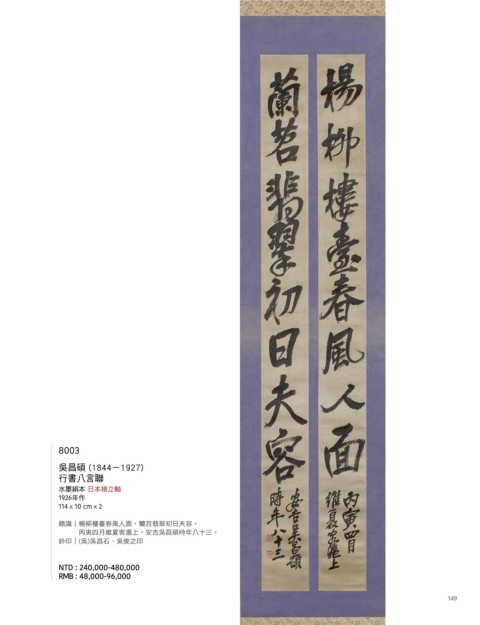 楊柳樓臺春風人面
丙寅四月
維夏客滬上
蘭苕翡翠初日夫容
安吉吳昌碩
時年八十三
8003
吳昌碩（1844－1927）
行書八言聯
水墨絹本 日本裱立軸
1926年作
114 x 10 cm x 2
題識｜楊柳樓臺春風人面，蘭苕翡翠初日夫容。
丙寅四月維夏客滬上，安吉吳昌碩時年八十三。
鈐印｜(吳)吳昌石、吳俊之印
NTD : 240,000-480,000
RMB : 48,000-96,000
149